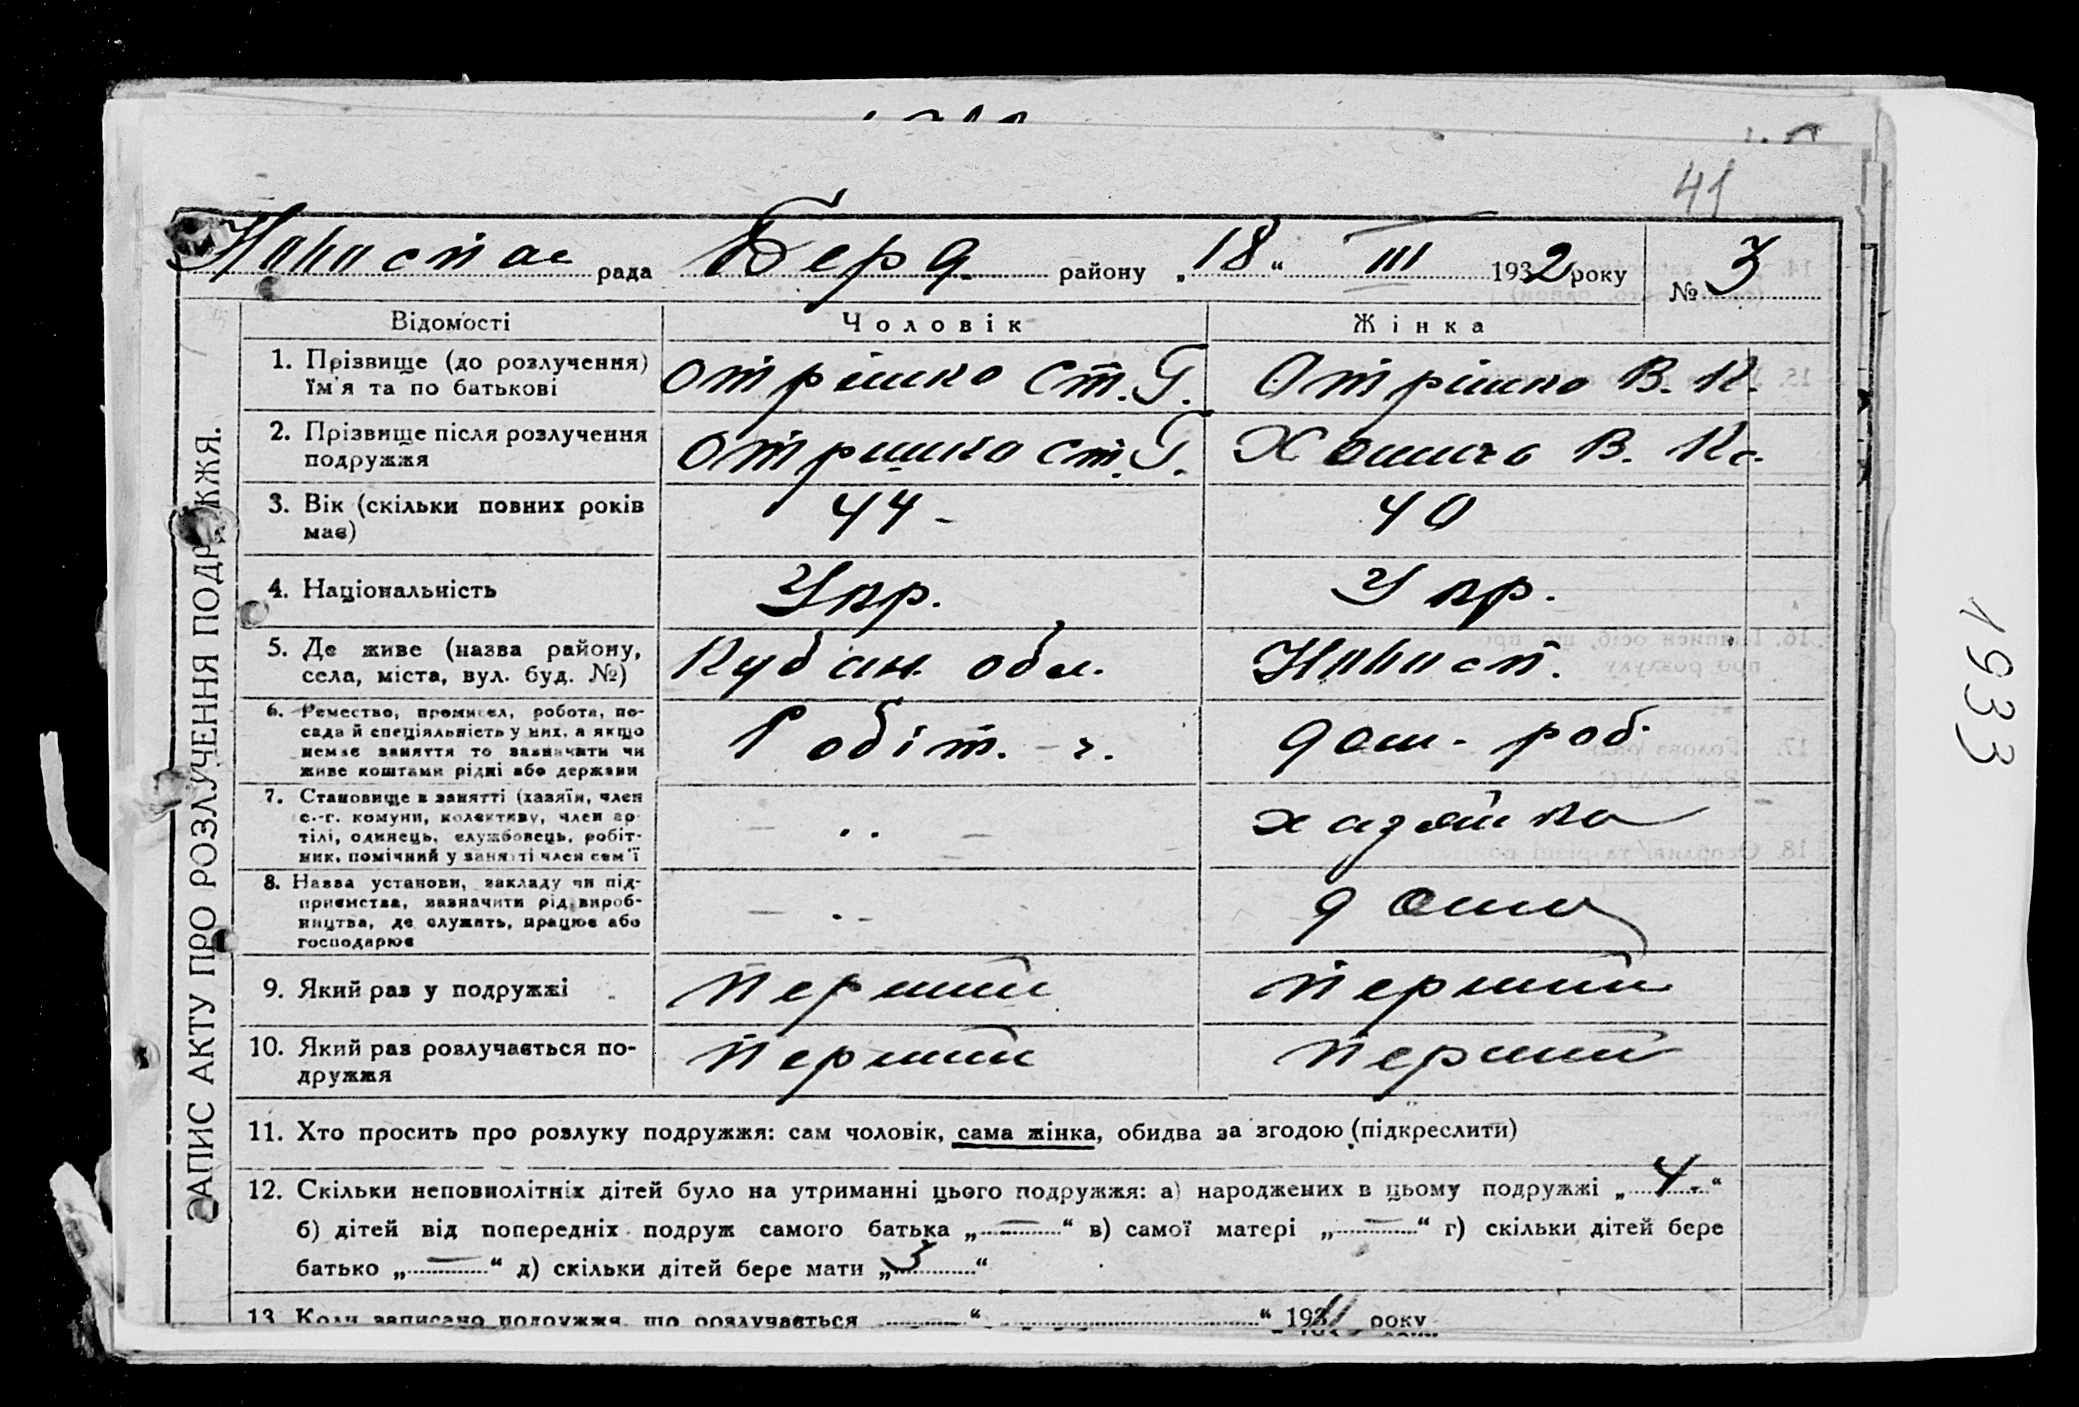 41
рада Берд. району „18“ III 1932 року № 3
Відомості Чоловік Жінка
1. Прізвище (до розлучення) Отрішко Ст. Г. Отрішко В. К.
їм'я та по батькові
2. Прізвище після розлучення Отришко Ст. Г. В. К.
подружжя
3. Вік (скільки повних років 44 - 40
має)
4. Національність Укр. Укр.
5. Де живе (назва району, Кубан. обл.
села, міста, вул. буд. №)
6. Ремество, промисел, робота, по-
сада й спеціяльність у них, а якщо Робіт. дом. роб.
немає заняття то зазначати чи
живе коштами рідні або держави
7. Становище в занятті (хазяїн, член
с.-г. комуни, колективу, член ар- хазяйка
тілі, одинець, службовець, робіт-
ник, помічний у занятті член сем'ї
8. Назва установи, закладу чи під-
приємства, зазначити рід вироб- дома
ництва, де служить, працює або
господарює
9. Який раз у подружжі перший перший
10. Який раз розлучається по- перший перший
дружжя
11. Хто просить про розлуку подружжя: сам чоловік, сама жінка, обидва за згодою (підкреслити)
12. Скільки неповнолітніх дітей було на утриманні цього подружжя: а) народжених в цьому подружжі „4“
б) дітей від попередніх подруж самого батька „—“ в) самої матері „—“ г) скільки дітей бере
батько „—“ д) скільки дітей бере мати „3“
13. Коли записано подружжя, що розлучається “ “ 193 року
ЗАПИС АКТУ ПРО РОЗЛУЧЕННЯ ПОДРУЖЖЯ.
1933